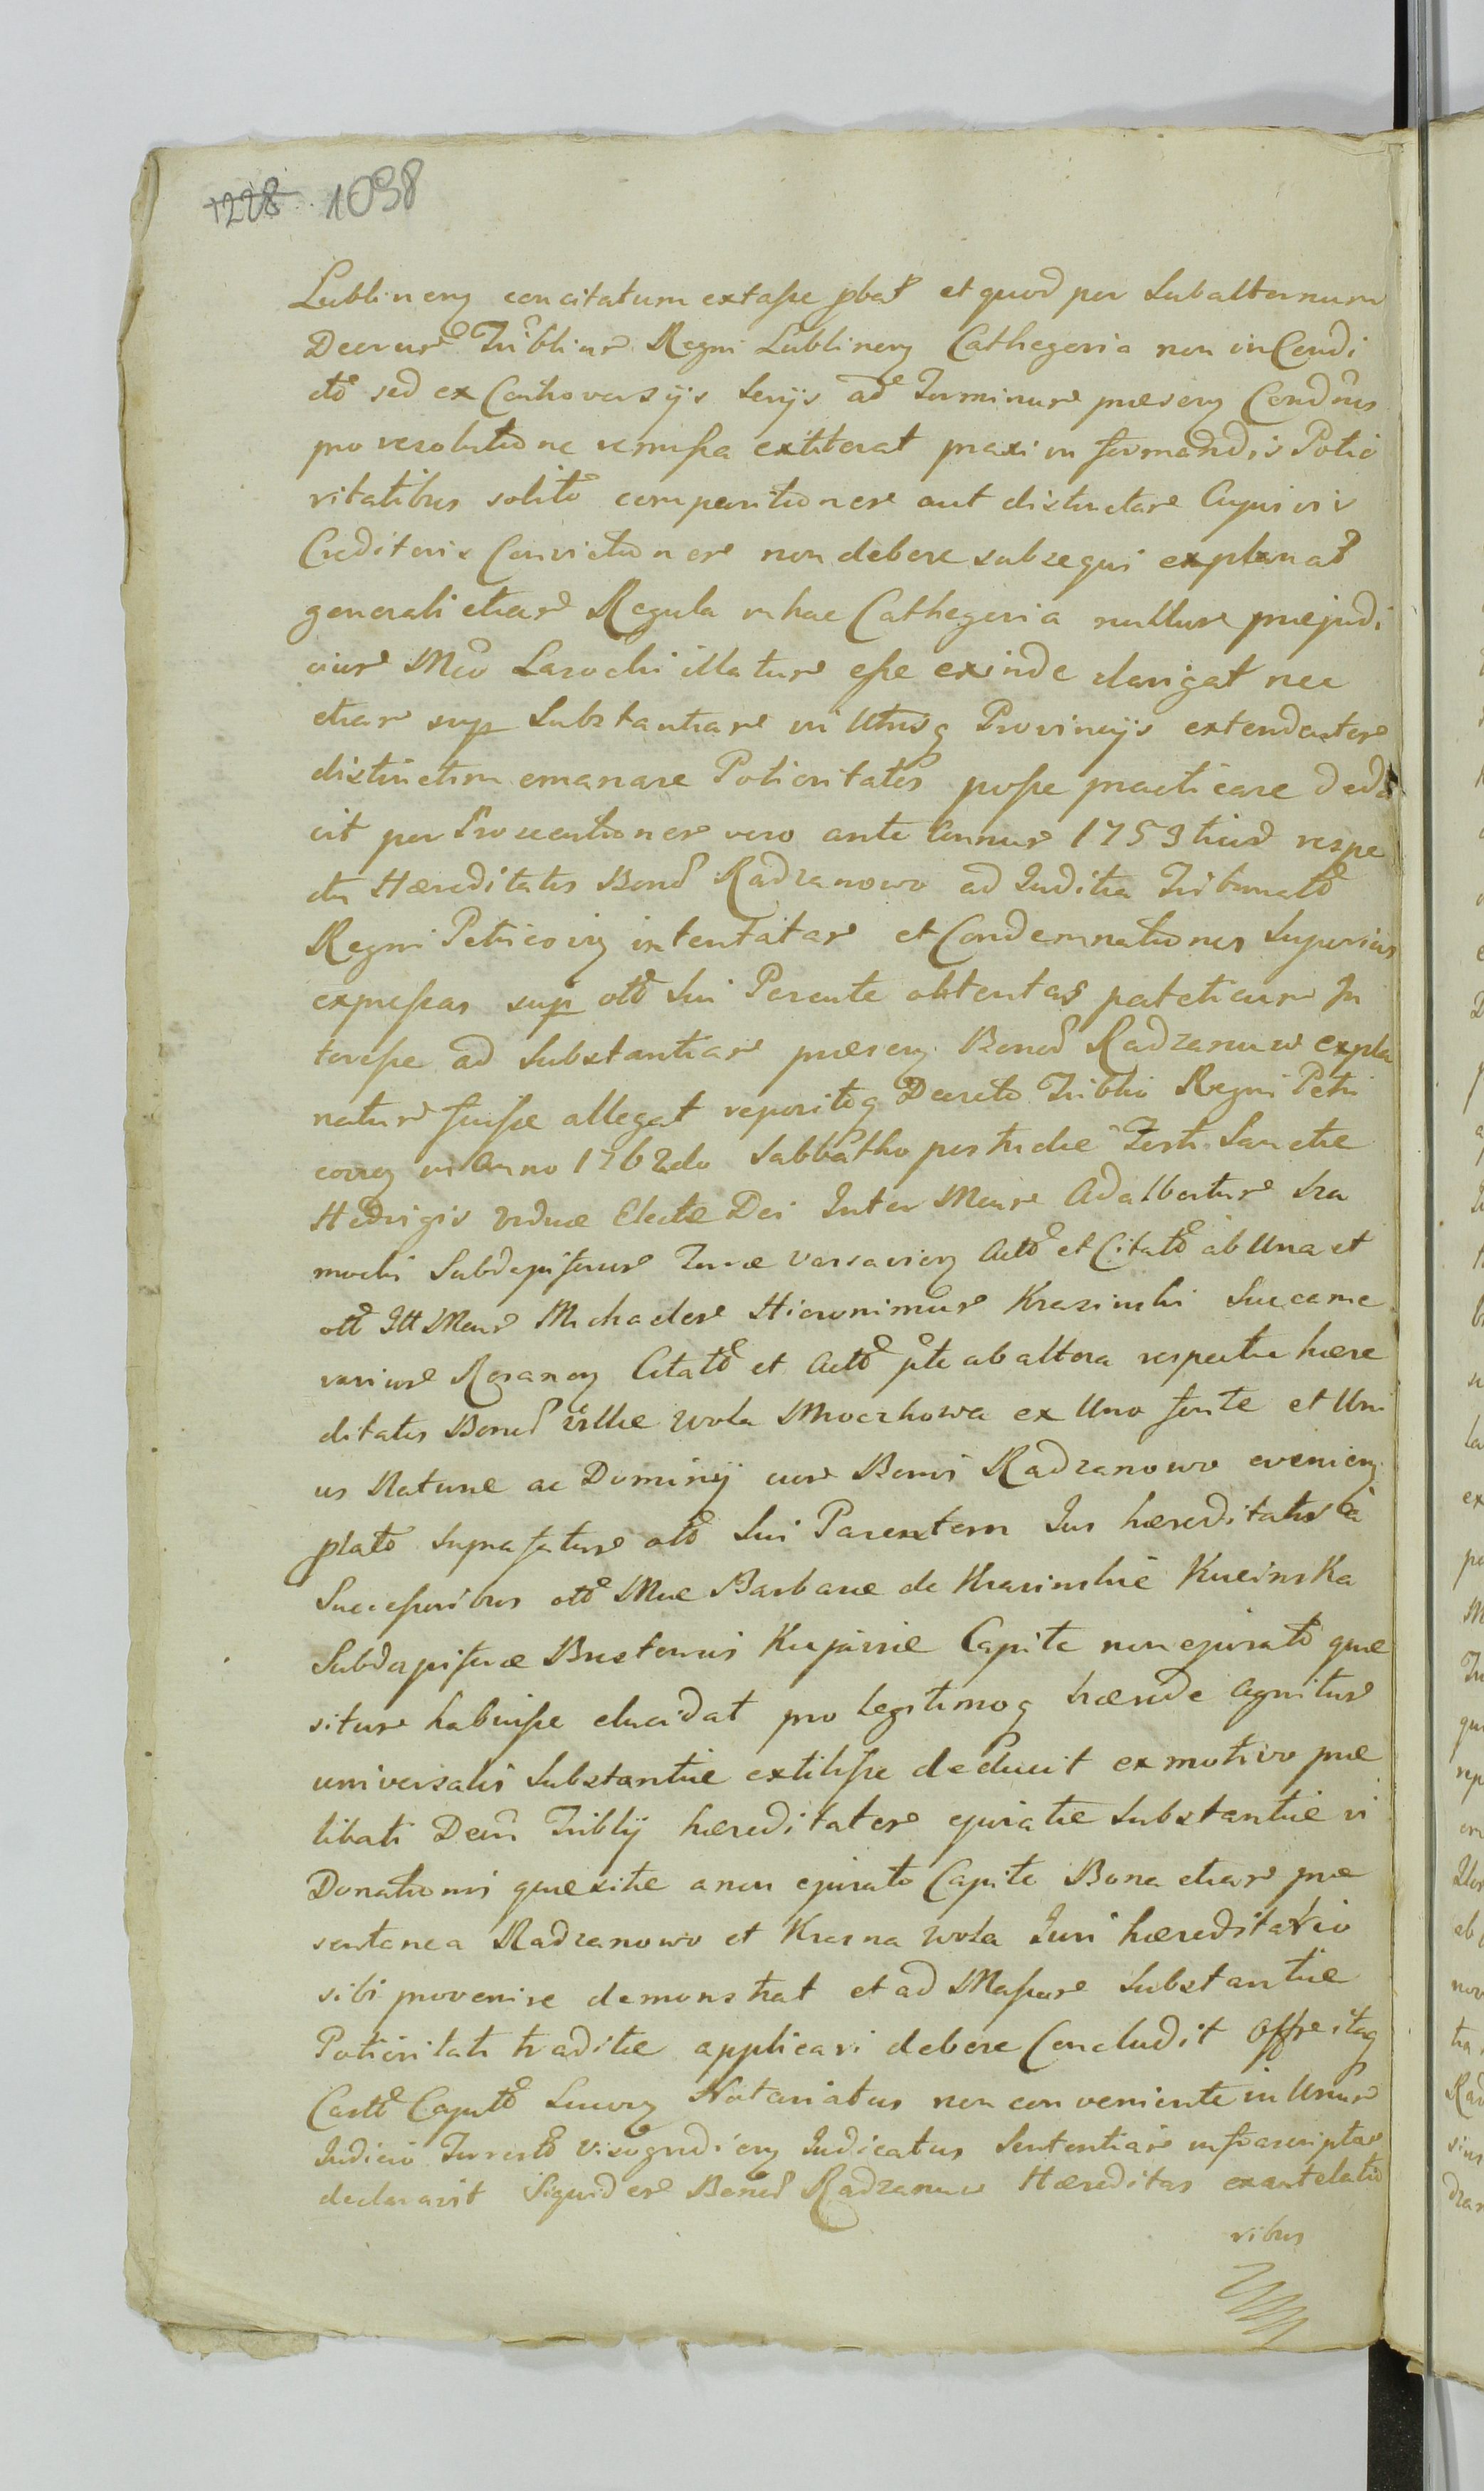 1228. 1098
Lublineñ concitatum extasse pbat et quod per Subalternum
Decrum Triblium Regni Lublineñ Cathegoria non in Condi
cto sed ex Controversijs serijs ad Terminum præseñ Condnis
pro resolutione remissa extiterat praxi in formandis Potio
ritatibus solito compartitionem aut distinctam Cujusvis
Creditoris Convictionem non debere subsequi explanat
generali etiam Regula in hac Cathegoria nullum præjudi
cium Mco Larochi illatum esse exinde clarigat nec
etiam sup Substantiam in Utrisq Provincijs extendentem
distinctim emanare Potioritates posse practicare dedu
cit per Processtionem vero ante Annum 1753tium respe
ctu Hæreditatis Bonor Radzanowo ad Juditia Tribunalo
Regni Petricoviẽ intentatam et Condemnationes Superius
expressas sup olto Sui Parente obtentas patetieum In
teresse ad Substantiam præseñ Bonor Radzanuw expla
natum fuisse allegat repositoq Decreto Triblio Regni Petri
coveñ in Anno 1762do Sabbatho postridie Festi Sanctæ
Hedvigis Viduæ Electæ Dei Inter Mcum Adalbertum Sra
mocki Subdapiferum Terræ Varsavieñ Acto et Citato ab Una et
olto Ill Mcum Michaelem Hieronimum Krasinski Succame
rarium Rozaneñ Citato et Acto pte ab altera respectu hære
ditatis Bonor Villæ Wola Mroczkowa ex Uno fonte et Uni
us Naturæ ac Dominij cum Bonis Radzanowo evenieñ
plato Suprafatum olto Sui Parentem Jus hæreditatis à
Successoribus olto Mcæ Barbaræ de Krasinskie Kucinska
Subdapiferæ Brestensis Kujaviæ Capite non ejurato quæ
situm habuisse elucidat pro legitimoq hærede agnitum
universalis Substantiæ extitisse deducit ex motivo præ
libati Decri Triblij hæreditatem ejuratæ Substantiæ vi
Donationis quæsitæ a non ejurato Capite Bona etiam præ
sentanea Radzanowo et Krasna Wola Juri hæreditario
sibi provenire demonstrat et ad Massam Substantiæ
Potioritati traditæ applicari debere Concludit Offreitaq
Casto Caputo Suoreñ Notariatus non conveniente in Unum
Judicio Terresto Visogrodieñ Judicatus Sententiam infrascriptam
declaravit Siquidem Bonor Radzanuw Hæreditas exantelatio
ribus